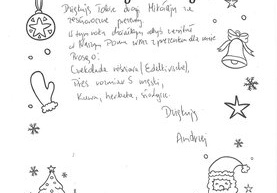 Dziękuję Tobie drogi Mikołaju za
zeszłoroczne prezenty.
W tym roku chciałbym abyś zawitał
w Naszym Domu wraz z prezentem dla mnie
Proszę:
Czekolada różowa (Edelkirsche),
Dres rozmiar S męski,
Kawa, herbata, słodycze.
Dziękuję
Andrzej